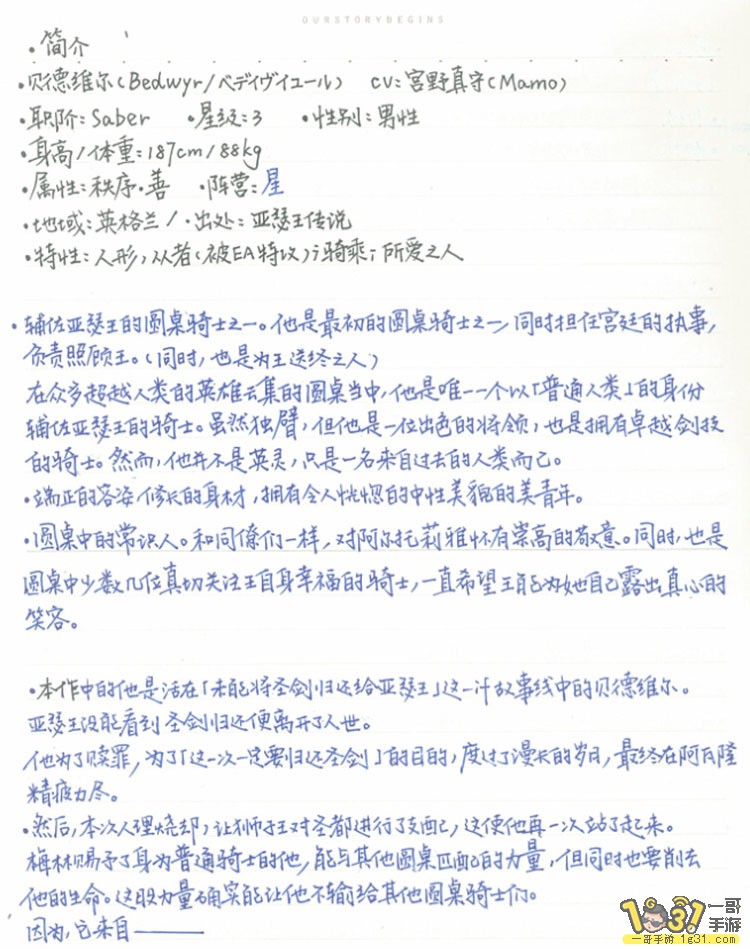 OURSTORYBEGINS
·简介
·贝德维尔(Bedwyr/ベディヴィエール) CV:宫野真守(Mamo)
·职阶:Saber ·星级:3 ·性别:男性
·身高/体重:187cm/88kg
·属性:秩序·善 ·阵营:星
·地域:英格兰/·出处:亚瑟王传说
·特性:人形,从者(被EA特攻);骑乘;所爱之人
·辅佐亚瑟王的圆桌骑士之一。他是最初的圆桌骑士之一,同时担任宫廷的执事,
负责照顾王。(同时,也是为王送终之人)
在众多超越人类的英雄云集的圆桌当中,他是唯一一个以「普通人类」的身份
辅佐亚瑟王的骑士。虽然独臂,但他是一位出色的将领,也是拥有卓越剑技
的骑士。然而,他并不是英灵,只是一名来自过去的人类而已。
·端正的容姿修长的身材,拥有令人恍惚的中性美貌的美青年。
·圆桌中的常识人。和同僚们一样,对阿尔托莉雅怀有崇高的敬意。同时,也是
圆桌中少数几位真切关注王自身幸福的骑士,一直希望王能为她自己露出真心的
笑容。
·本作中的他是活在「未能将圣剑归还给亚瑟王」这一计故事线中的贝德维尔。
亚瑟王没能看到圣剑归还便离开了人世。
他为了赎罪,为了「这一次一定要归还圣剑」的目的,度过了漫长的岁月,最终在阿瓦隆
精疲力尽。
·然后,本次人理烧却,让狮子王对圣都进行了支配,这使他再一次站了起来。
梅林赐予了身为普通骑士的他,能与其他圆桌匹配的力量,但同时也要削去
他的生命。这股力量确实能让他不输给其他圆桌骑士们。
因为,它来自———
1931 一哥手游
一哥手游 1g31.com